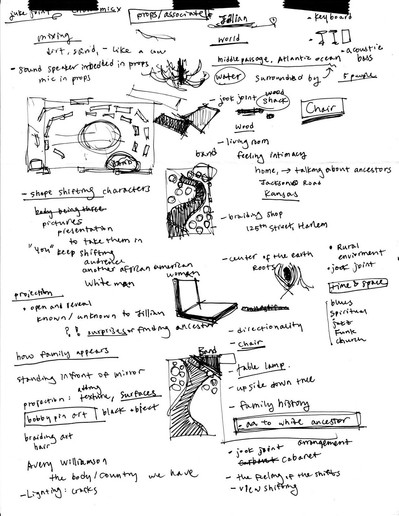 juke joint
props/associate
Jillian
- keyboard
mixing
world
dirt, sand, - like a
middle passage, Atlantic ocean
- acoustic bass
- sound speaker imbedded in props
mic in props
water surrounded by
5 pounds
- jook joint wood shack
Chair
wood
- living room
feeling intimacy
band
home, → talking about ancestors
Jackson Road
Kansas
sand
- shape shifting characters
pictures
presentation
to take them in
"you" keep shifting
audience
another african american woman
white man
- braiding shop
125th Street, Harlem
- center of the earth
Roots
• Rural enviroment
• jook joint
time & space
blues
spiritual
jazz
Funk
church
projection
• open and reveal
known/unknown to Jillian
?? surprises or finding ancestor
- directionality
- chair
how family appears
Band
- table lamp
standing in front of mirror
- upside down tree
projection: texture, surfaces
- family history
bobby pin art
black object
- aa to white ancestor
braiding art
hair
- jook joint arrangement
cabaret
Avery Williamson
the body/country we have
- the feeling of the shifts
- Lighting: cracks
- view shifting